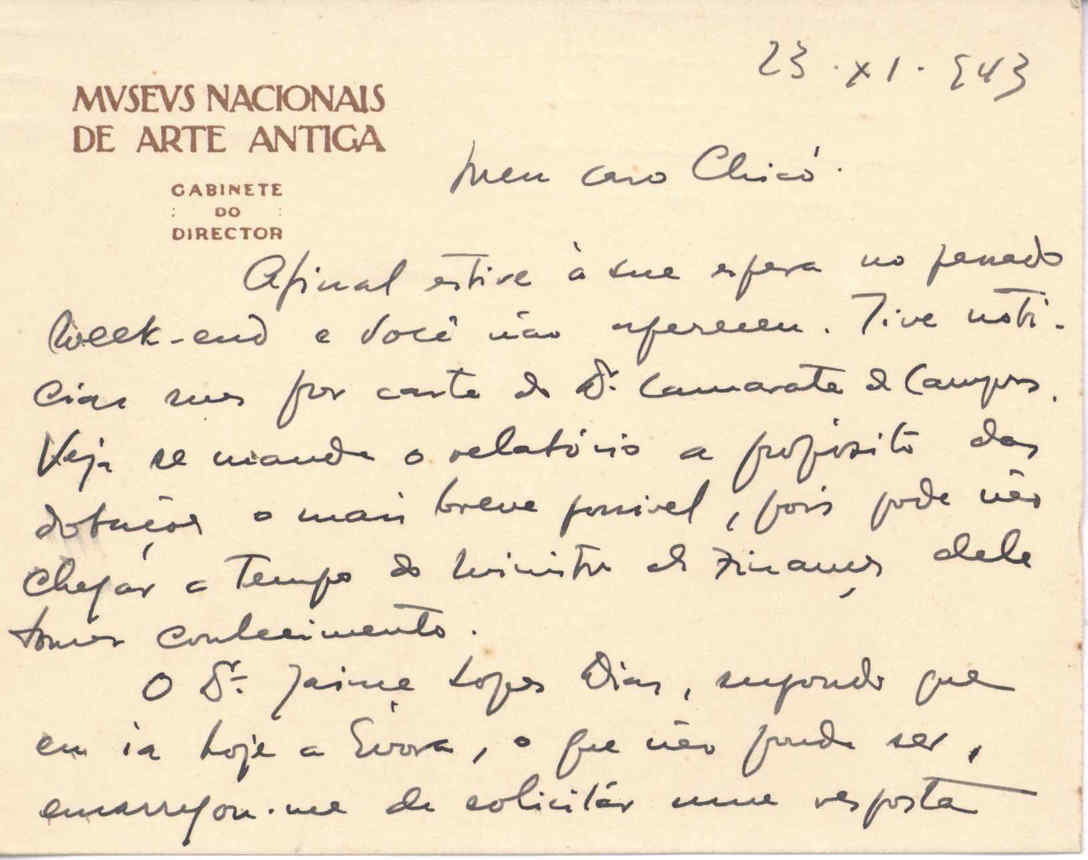 23·XI·943
MVSEVS NACIONAIS
DE ARTE ANTIGA
GABINETE
DO
DIRECTOR
Meu caro Chicó.
Afinal estive à sua espera no passado
week-end e Você não apareceu. Tive notí-
cias suas por carta do Dr. Camarate de Campos.
Veja se manda o relatório a propósito das
dotações o mais breve possivel, pois pode não
chegár a tempo do Ministro das Finanças dele
tomar conhecimento.
O Dr. Jaime Lopes Dias, supondo que
eu ia hoje a Évora, o que não poude ser,
encarregou-me de solicitár uma resposta